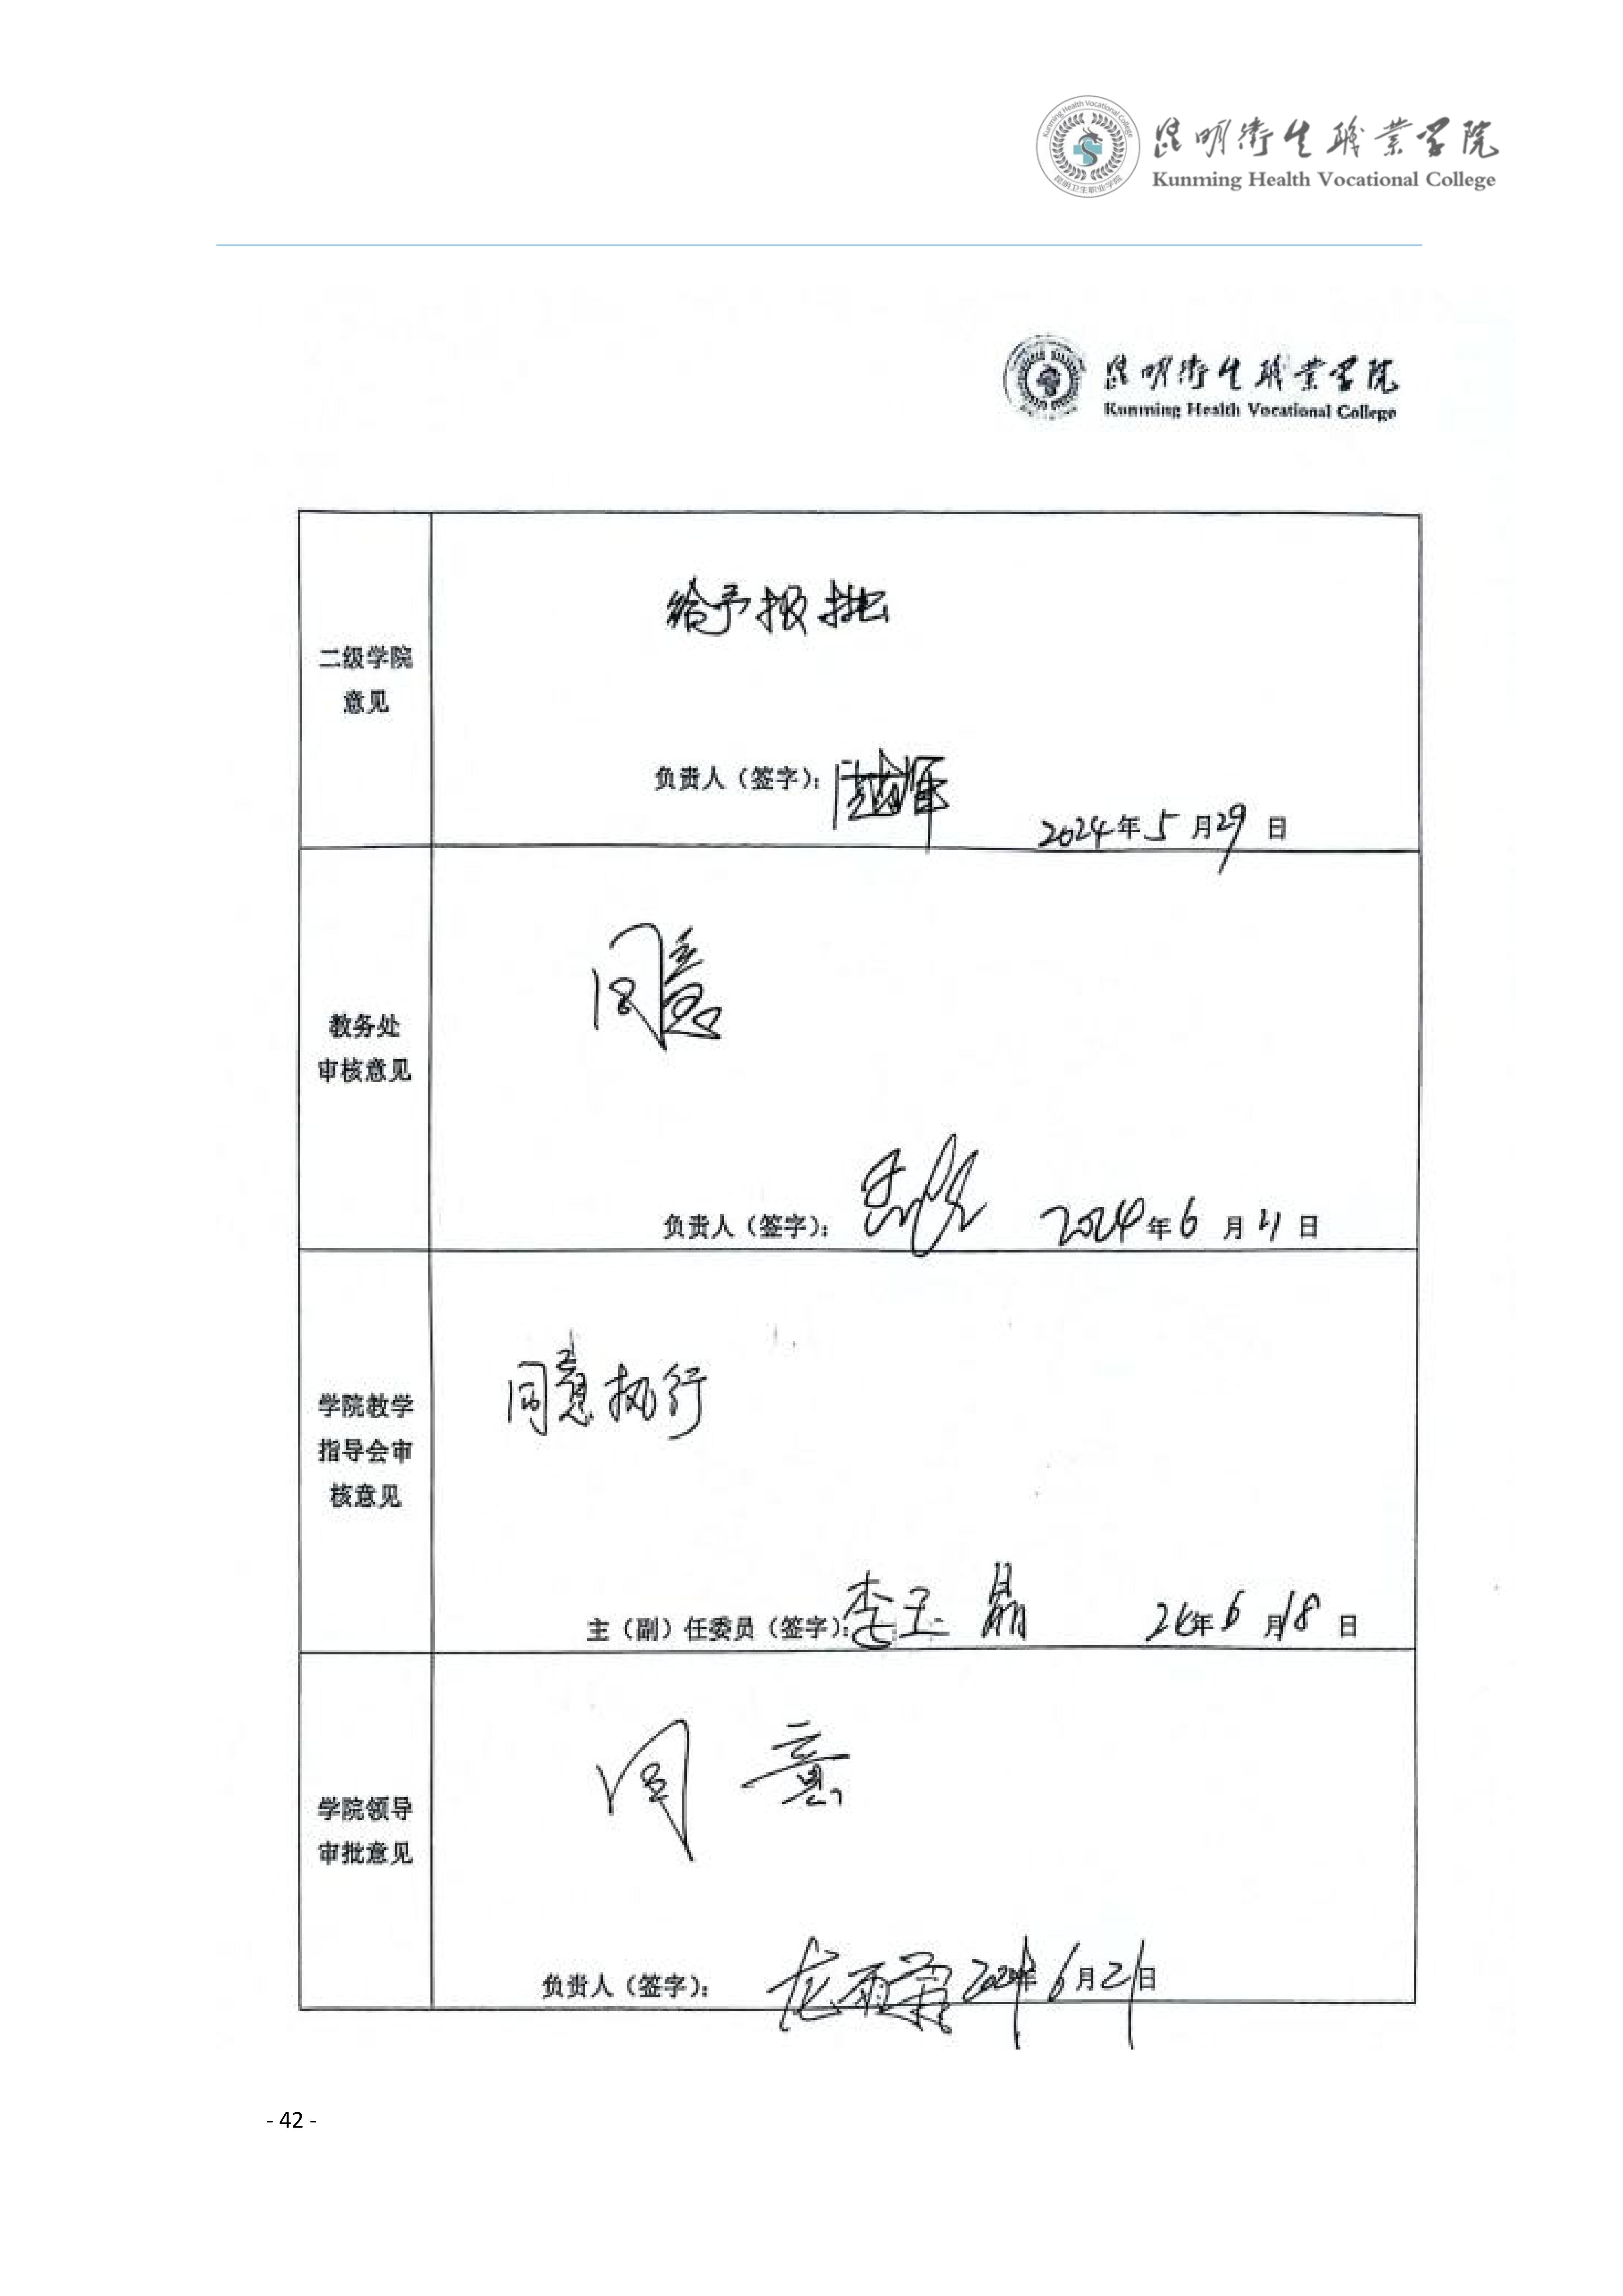 昆明衛生職業学院
Kunming Health Vocational College
昆明衛生職業学院
Kunming Health Vocational College
二级学院
意见
给予报批
负责人（签字）：
2024年5月29日
教务处
审核意见
同意
负责人（签字）：
2024年6月11日
学院教学
指导会审
核意见
同意执行
主（副）任委员（签字）：李玉晶
24年6月18日
学院领导
审批意见
同意
负责人（签字）：龙雨霖 2024年6月21日
- 42 -